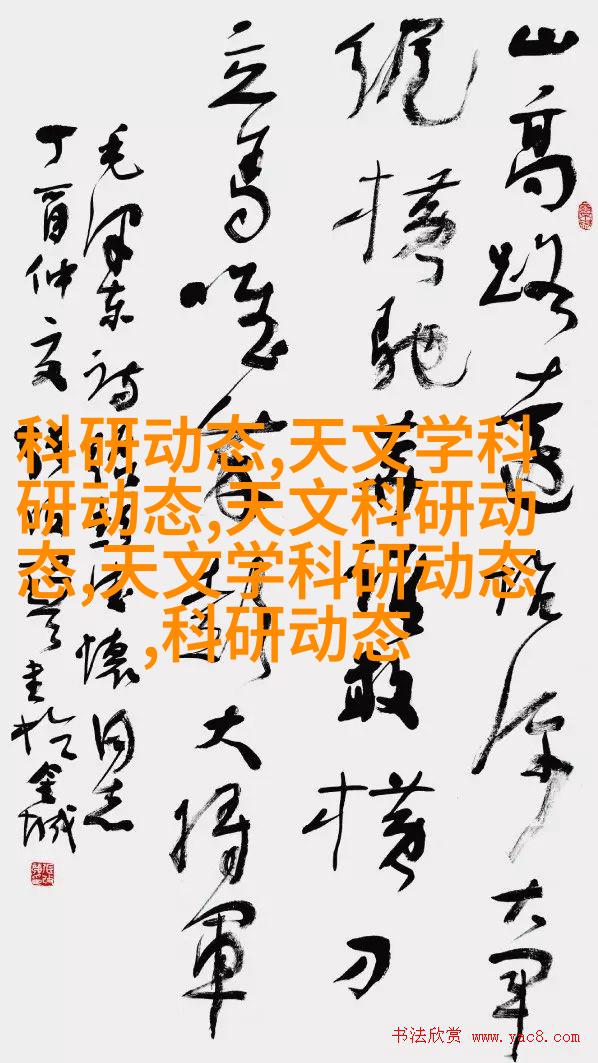 山高路遠坑深大军
縱橫馳奔誰敢橫刀
立馬唯我彭大將軍
毛澤东诗赠彭德懷同志
丁酉仲夏書於金城
科研动态,天文学科
研动态,天文科研动
态,天文学科研动态
,科研动态
书法欣赏 www.yac8.com